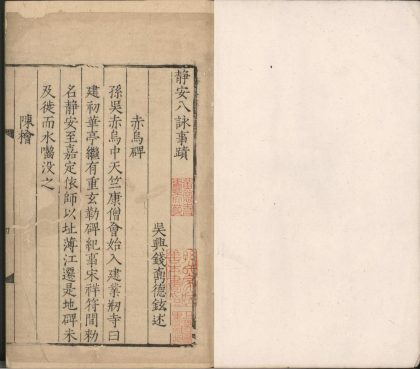 静安八詠事蹟
吳興錢鼒德鉉述
赤烏碑
孫吳赤烏中天竺康僧會始入建業剏寺曰
建初華亭繼有重玄勒碑紀事宋祥符間勅
名静安至嘉定依師以址薄江遷是地碑未
及徙而水囓没之
陳檜